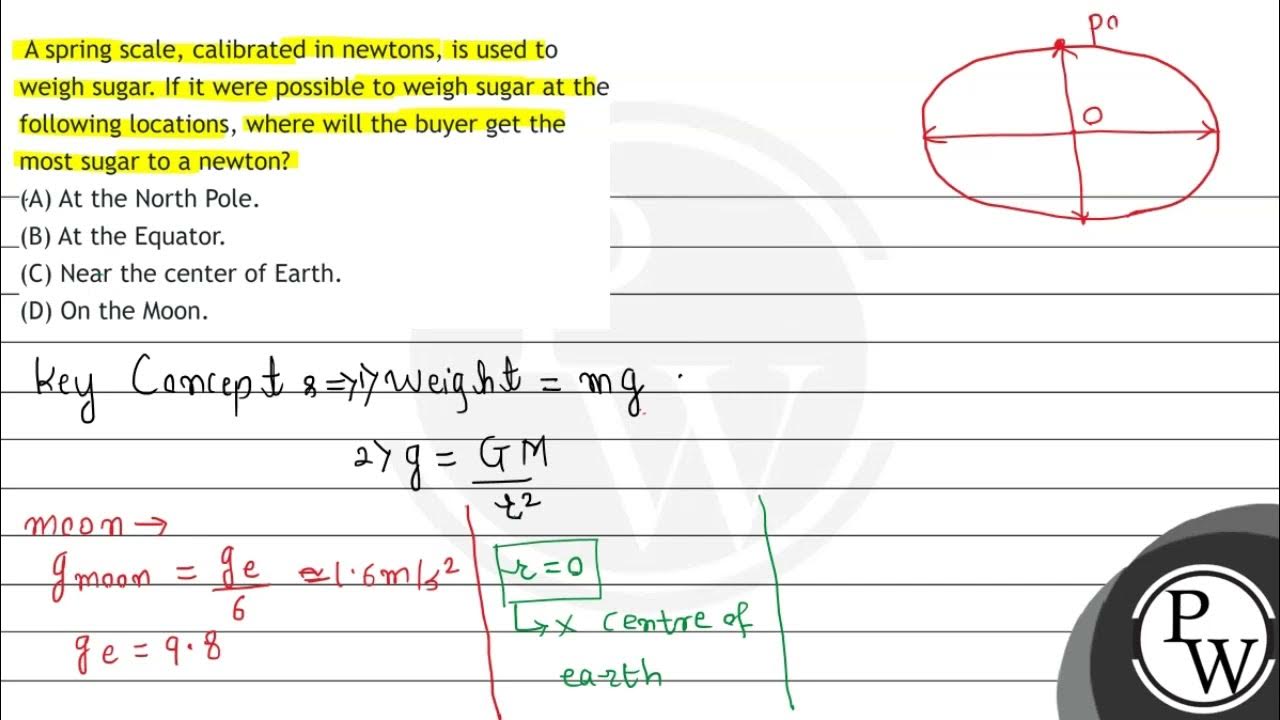 A spring scale, calibrated in newtons, is used to
weigh sugar. If it were possible to weigh sugar at the
following locations, where will the buyer get the
most sugar to a newton?
(A) At the North Pole.
(B) At the Equator.
(C) Near the center of Earth.
(D) On the Moon.
po
O
Key Concepts :=> 1> Weight = mg
2> g = GM
r²
moon →
g moon = ge ≃ 1.6m/s²
6
ge = 9.8
r = 0
↳ x centre of
earth
PW
PW